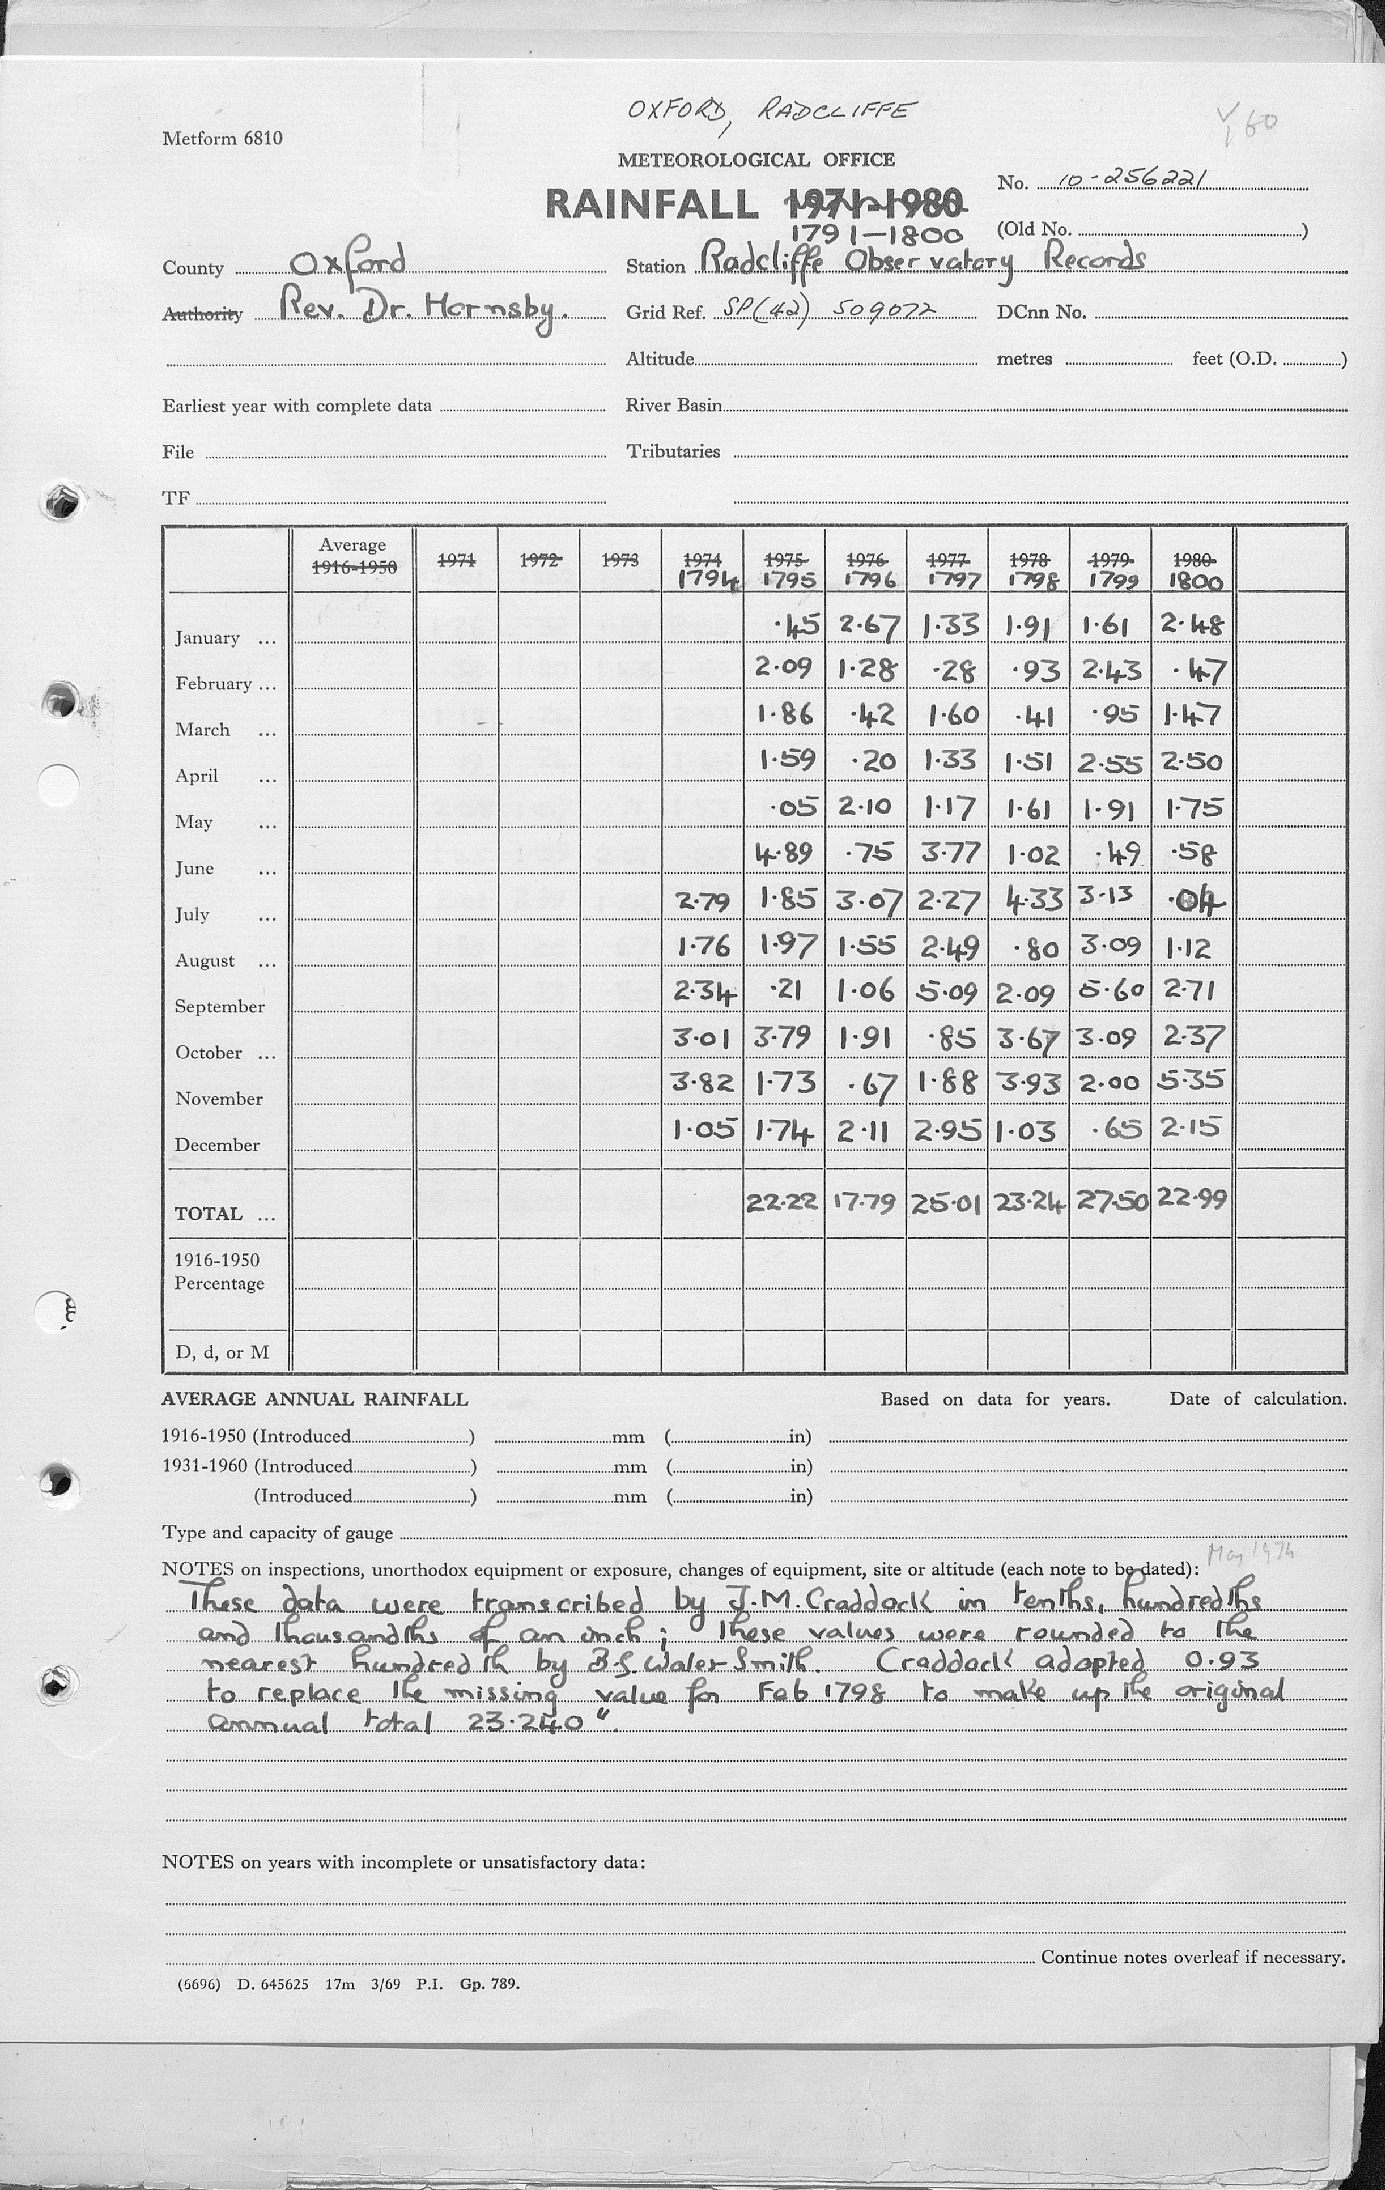 OXFORD, RADCLIFFE
Metform 6810
METEOROLOGICAL OFFICE
RAINFALL 1971-1980
1791-1800
No. 10-256221
(Old No. )
County Oxford
Station Radcliffe Observatory Records
Authority Rev. Dr. Hornsby.
Grid Ref. SP(42) 509072
DCnn No.
Altitude metres feet (O.D. )
Earliest year with complete data
River Basin
File
Tributaries
TF
Average
1916-1950 1971 1972 1973 1974 1975 1976 1977 1978 1979 1980
1794 1795 1796 1797 1798 1799 1800
January ... ·45 2·67 1·33 1·91 1·61 2·48
February ... 2·09 1·28 ·28 ·93 2·43 ·47
March ... 1·86 ·42 1·60 ·41 ·95 1·47
April ... 1·59 ·20 1·33 1·51 2·55 2·50
May ... ·05 2·10 1·17 1·61 1·91 1·75
June ... 4·89 ·75 3·77 1·02 ·49 ·58
July ... 2·79 1·85 3·07 2·27 4·33 3·13 ·04
August ... 1·76 1·97 1·55 2·49 ·80 3·09 1·12
September 2·34 ·21 1·06 5·09 2·09 5·60 2·71
October ... 3·01 3·79 1·91 ·85 3·67 3·09 2·37
November 3·82 1·73 ·67 1·88 3·93 2·00 5·35
December 1·05 1·74 2·11 2·95 1·03 ·65 2·15
TOTAL ... 22·22 17·79 25·01 23·24 27·50 22·99
1916-1950
Percentage
D, d, or M
AVERAGE ANNUAL RAINFALL Based on data for years. Date of calculation.
1916-1950 (Introduced ) mm ( in)
1931-1960 (Introduced ) mm ( in)
(Introduced ) mm ( in)
Type and capacity of gauge
May 1974
NOTES on inspections, unorthodox equipment or exposure, changes of equipment, site or altitude (each note to be dated):
These data were transcribed by J.M. Craddock in tenths, hundredths
and thousandths of an inch; these values were rounded to the
nearest hundredth by B.G. Wales-Smith. Craddock adopted 0.93
to replace the missing value for Feb 1798 to make up the original
annual total 23·240".
NOTES on years with incomplete or unsatisfactory data:
Continue notes overleaf if necessary.
(6696) D. 645625 17m 3/69 P.I. Gp. 789.